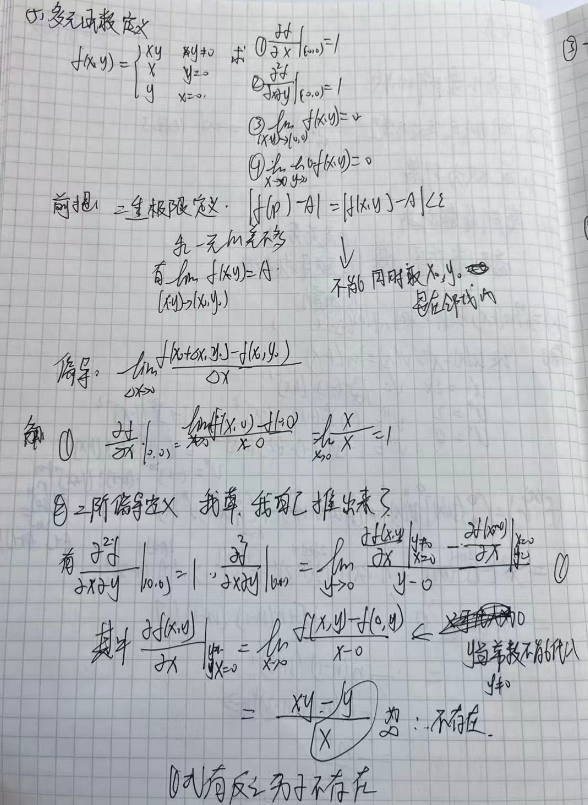 多元函数定义
f(x,y)= { xy xy≠0 求 ① ∂f/∂x|(0,0)=1
x y=0
y x=0. ② ∂²f/∂x∂y|(0,0)=1
③ lim (x,y)→(0,0) f(x,y)=0
④ lim x→0 lim y→0 f(x,y)=0
③
前提: 二重极限定义. |f(p)-A|=|f(x,y)-A|<ε
和一元
有 lim f(x,y)=A.
(x,y)→(x₀,y₀)
↓
不能同时取x₀,y₀
是在邻域内
偏导: lim Δx→0 f(x₀+Δx,y₀)-f(x₀,y₀) / Δx
解 ① ∂f/∂x|(0,0) = lim x→0 f(x,0)-f(0,0) / x-0 = lim x→0 x/x =1
② 二阶偏导定义 我草,我自己推出来了
有 ∂²f/∂x∂y|(0,0) =1 ∴ ∂²f/∂x∂y|(0,0) = lim y→0 ∂f(x,y)/∂x|y≠0 x=0 - ∂f(x,y)/∂x|x=0 y=0 / y-0 ①
其中 ∂f(x,y)/∂x|y≠0 x=0 = lim x→0 f(x,y)-f(0,y) / x-0 ←
y当常数不能代入
y≠0
= xy-y / x 为∞ ∴不存在.
①式有反之为子不存在